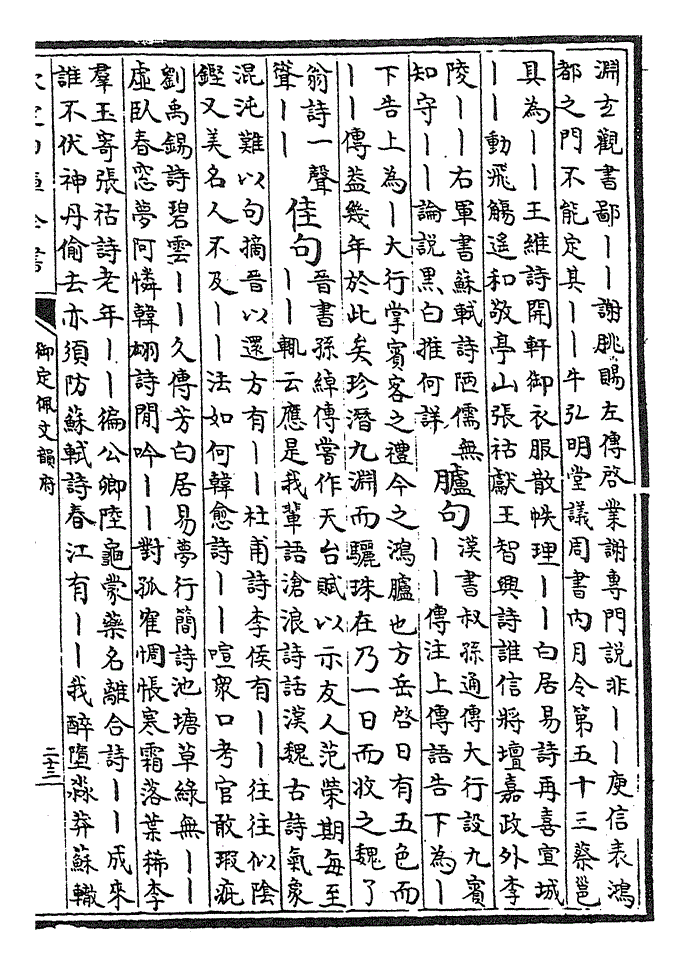 淵玄觀書鄙丨丨謝朓賜左傳啓業謝專門說非丨丨庾信表鴻
都之門不能定其丨丨牛弘明堂議周書内月令第五十三蔡邕
具為丨丨王維詩開軒御衣服散帙理丨丨白居易詩再喜宣城
丨丨動飛觴遙和敬亭山張祜獻王智興詩誰信將壇嘉政外李
陵丨丨右軍書蘇軾詩陋儒無
知守丨丨論說黑白推何詳
臚句
漢書叔孫通傳大行設九賓
丨丨傳注上傳語告下為丨
下告上為丨大行掌賓客之禮今之鴻臚也方岳啓日有五色而
丨丨傳葢幾年於此矣珍潛九淵而驪珠在乃一日而收之魏了
翁詩一聲
聲丨丨
佳句
晉書孫綽傳嘗作天台賦以示友人范榮期每至
丨丨輒云應是我輩語滄浪詩話漢魏古詩氣象
混沌難以句摘晉以還方有丨丨杜甫詩李侯有丨丨往往似陰
鏗又美名人不及丨丨法如何韓愈詩丨丨喧衆口考官敢瑕疵
劉禹錫詩碧雲丨丨久傳芳白居易夢行簡詩池塘草綠無丨丨
虛臥春窓夢阿憐韓翃詩閒吟丨丨對孤寉惆悵寒霜落葉稀李
羣玉寄張祜詩老年丨丨徧公卿陸龜蒙藥名離合詩丨丨成來
誰不伏神丹偷去亦須防蘇軾詩春江有丨丨我醉墮渺莽蘇轍
御定佩文韻府
二十三